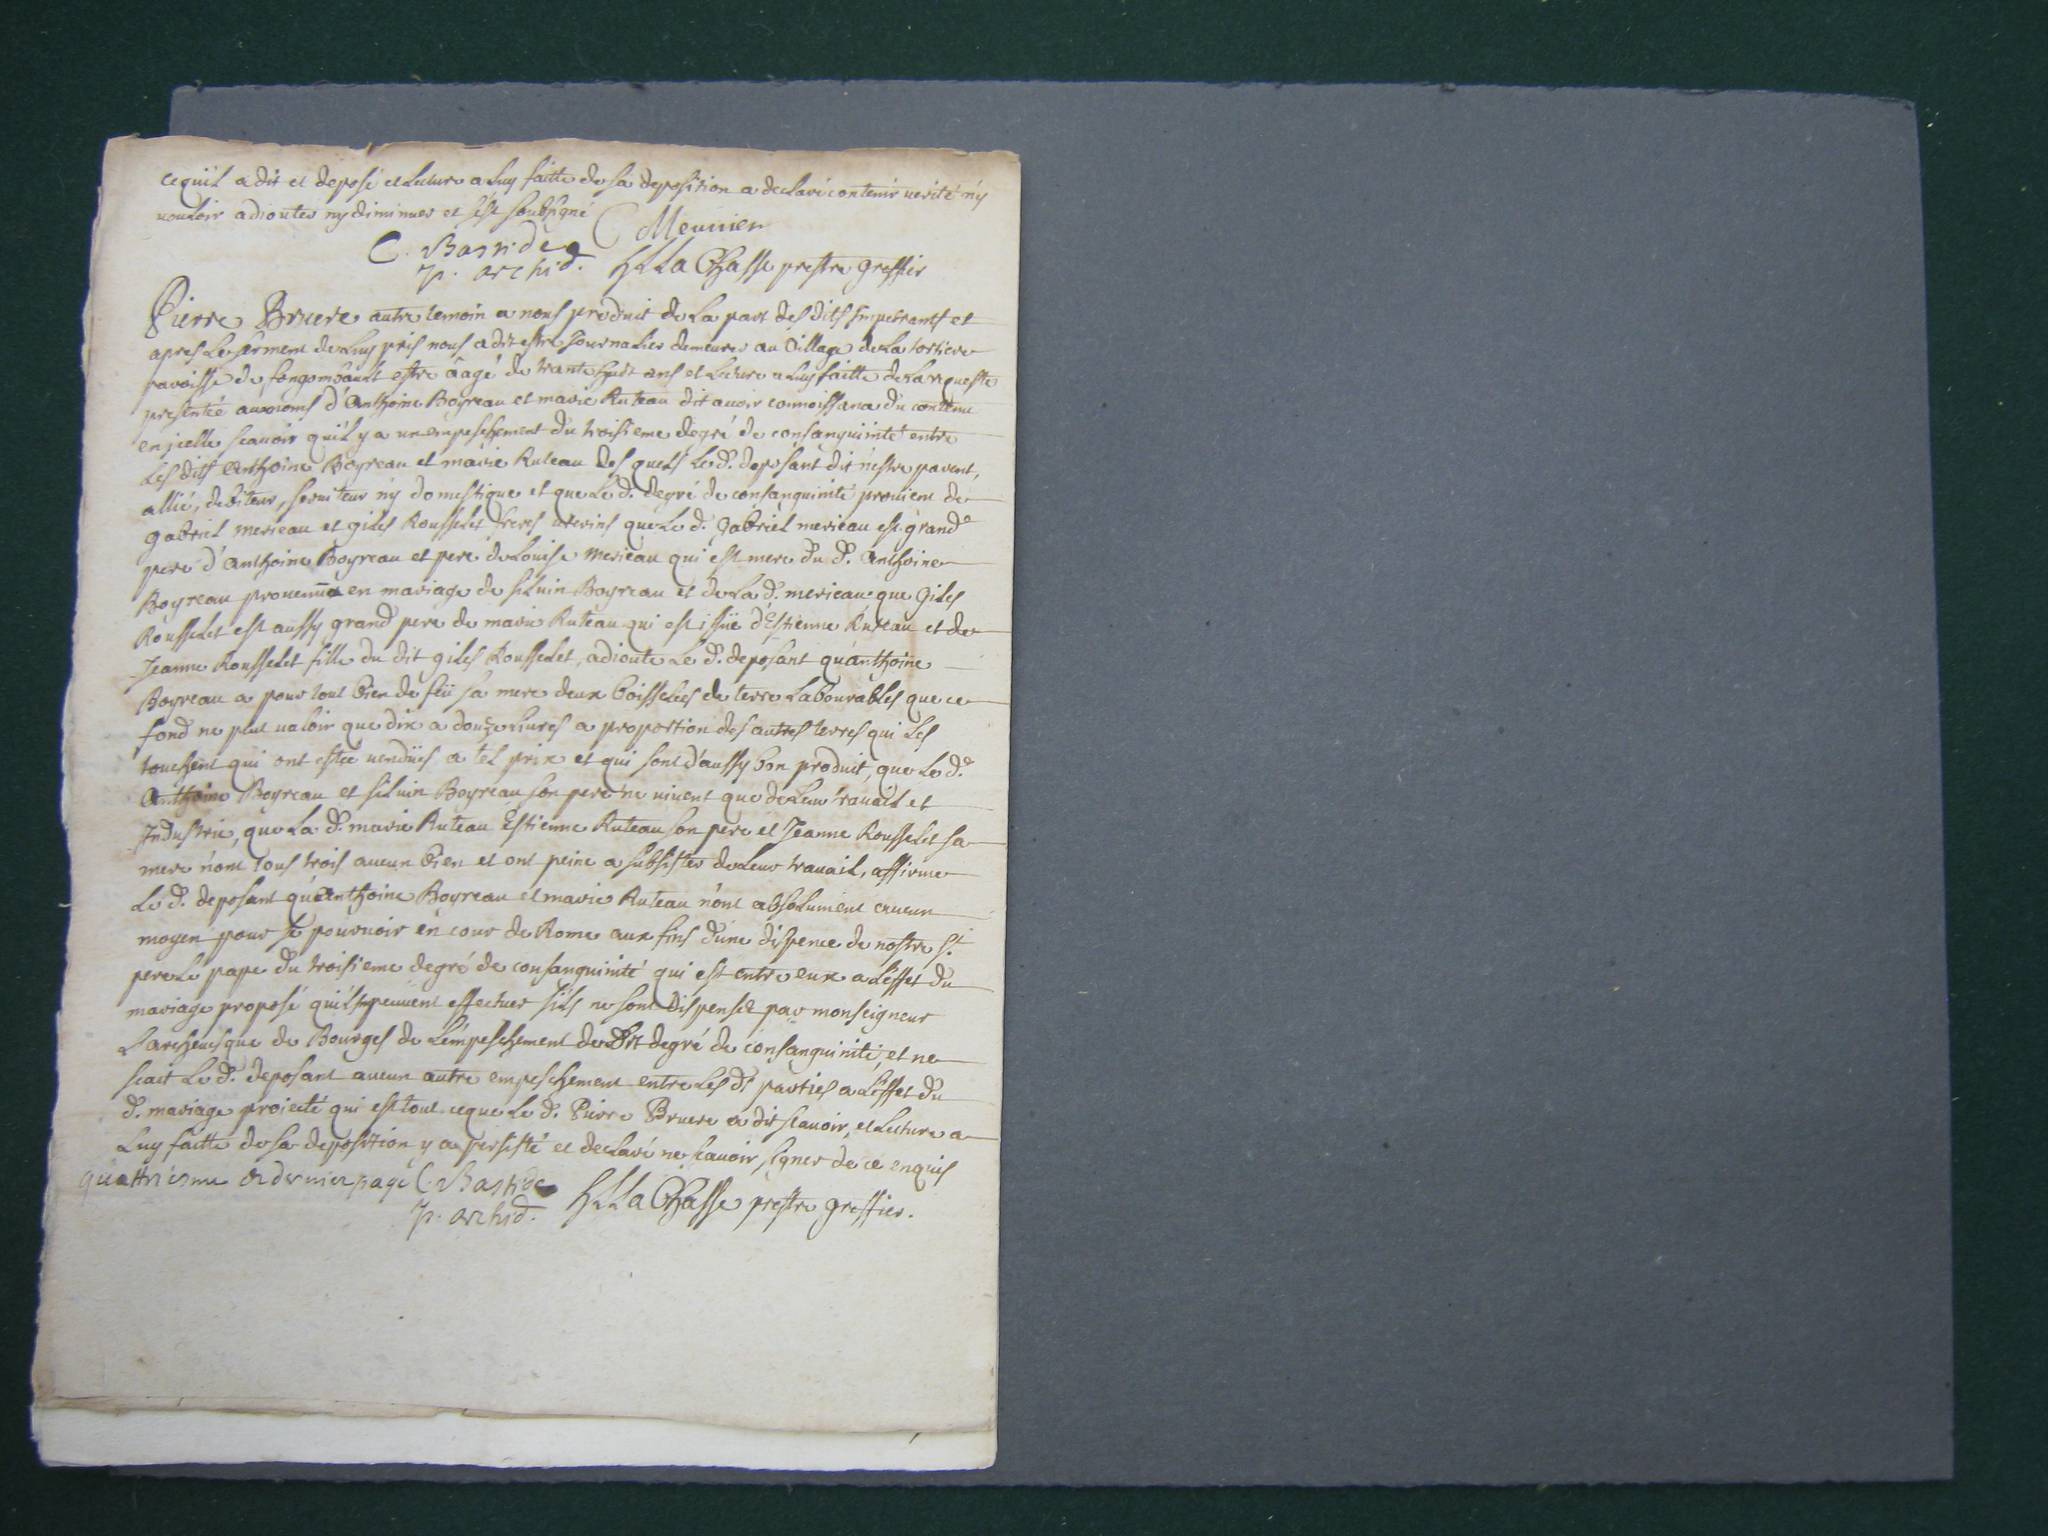 cequil a dit et deposé et lecture a luy faitte de sa deposition a declaré contenir verité n'y
vouloir adiouter ny diminuer et s'est soubsigné
Meunier
C. Bastide
p. archid. H L La Chasse prestre greffier
Pierre Bruere autre temoin a nous produit de la part des dits Impetrants et
apres le serment de luy pris nous a dit estre Journalier demeurer au village de la tortiere
paroisse de fongombault estre âagé de trante huit ans et lecture a luy faitte de la requeste
presentée aux noms d'Anthoine Boyreau et marie Ruteau dit avoir connoissance du contenu
en jcelle scavoir qu'il y a un empeschement du troisieme degré de consanguinité entre
les dits Anthoine Boyreau et marie Ruteau des quels le d. deposant dit n'estre parent,
allié, debiteur, serviteur n'y domestique et que le d. degré de consanguinité provient de
gabriel merieau et giles Rousselet freres uterins que le d. gabriel merieau est grand
pere d'Anthoine Boyreau et pere de Louise merieau qui est mere du d. Anthoine
Boyreau provenu en mariage de silvin Boyreau et de la d. merieau que giles
Rousselet est aussy grand pere de marie Ruteau qui est issüe d'Estienne Ruteau et de
Jeanne Rousselet fille du dit giles Rousselet, adioute le d. deposant qu'anthoine
Boyreau a pour tout bien de feü sa mere deux boisselées de terre labourables que ce
fond ne peut valoir que dix a douze livres a proportion des autres terres qui les
touchent qui ont estée vendües a tel prix et qui sont d'aussy bon produit, que le d.
Anthoine Boyreau et silvin Boyreau son pere ne vivent que de leur travail et
Industrie, que la d. marie Ruteau Estienne Ruteau son pere et Jeanne Rousselet sa
mere n'ont tous trois aucun bien et ont peine a subsister de leur travail, affirme
le d. deposant qu'Anthoine Boyreau et marie Ruteau n'ont absolument aucun
moyen pour se pourvoir en cour de Rome aux fins d'une dispence de nostre st.
pere le pape du troisieme degré de consanguinité qui est entre eux a l'effet du
mariage proposé qu'ils peuvent effectuer s'ils ne sont dispensé par monseigneur
L'archevesque de Bourges de l'empeschement de dit degré de consanguinité, et ne
scait le d. deposant aucun autre empeschement entre les ds parties a l'effet du
d. mariage proiecté qui est tout ceque le d. Pierre Bruere a dit scavoir, et lecture a
luy faitte de sa deposition y a persisté et declaré ne scavoir signer de ce enquis
quattriesme & dernier page C. Bastide
p. archid. H L La Chasse prestre greffier.